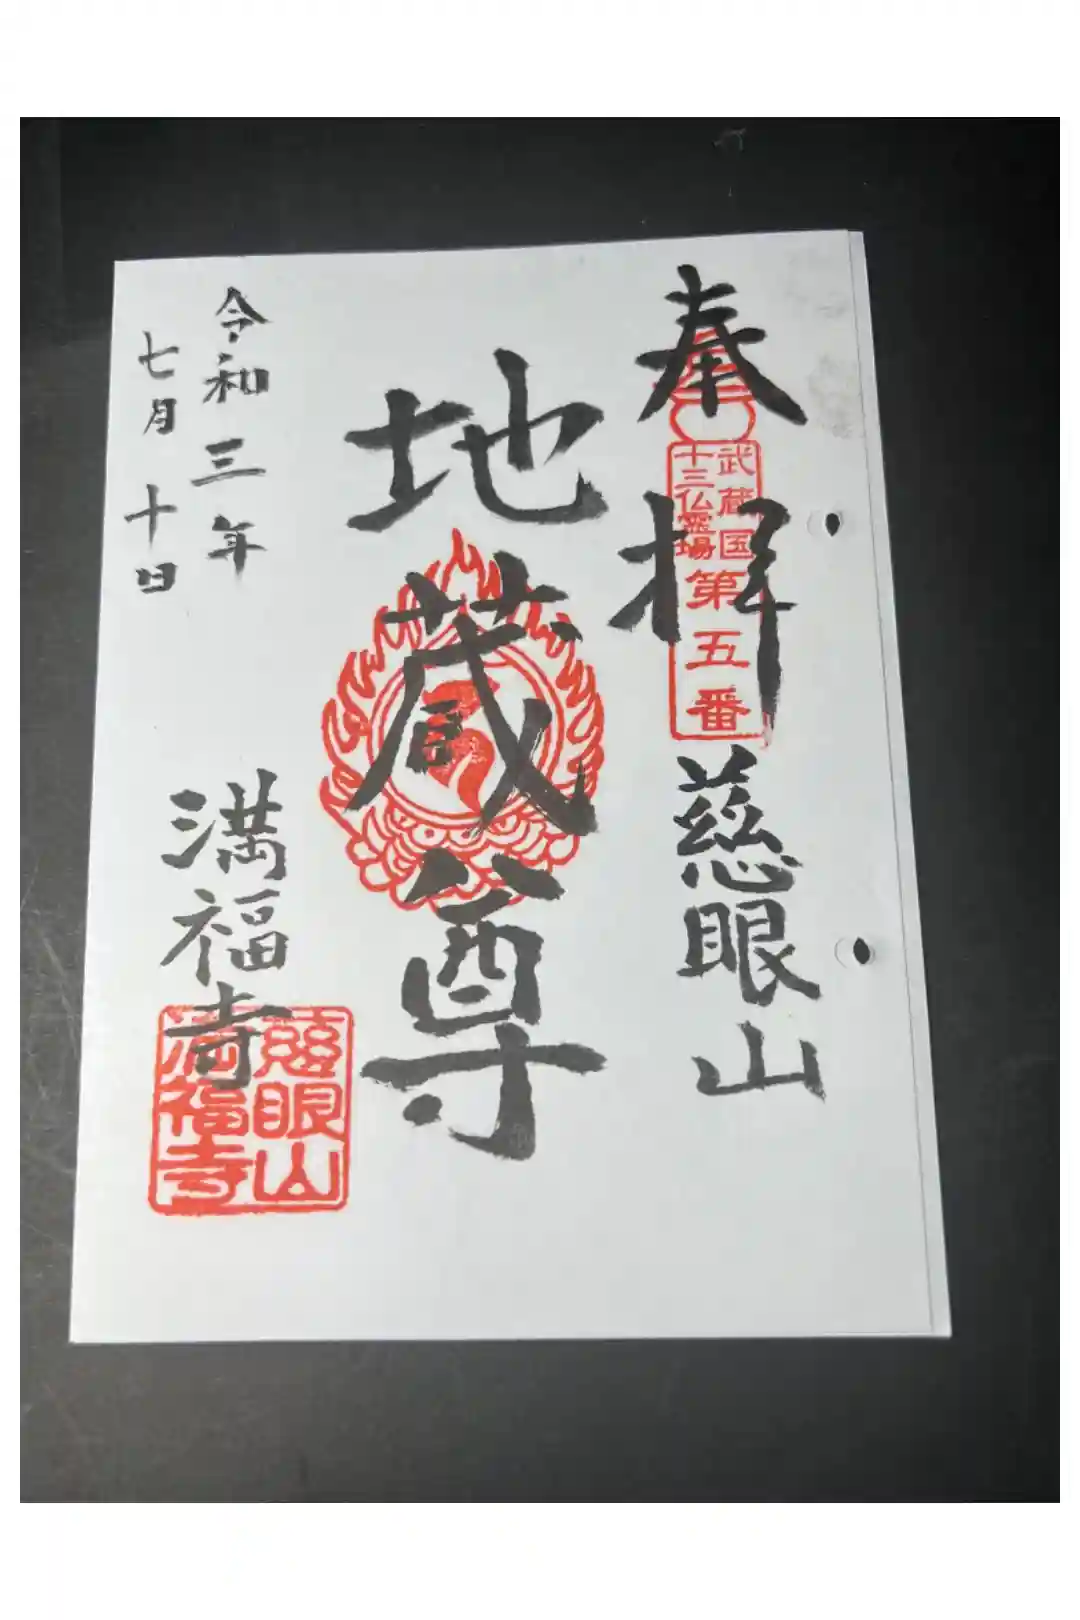 奉拝
武蔵国
十三仏霊場
第五番
慈眼山
地蔵尊
令和三年
七月十日
満福寺
慈眼山
満福寺